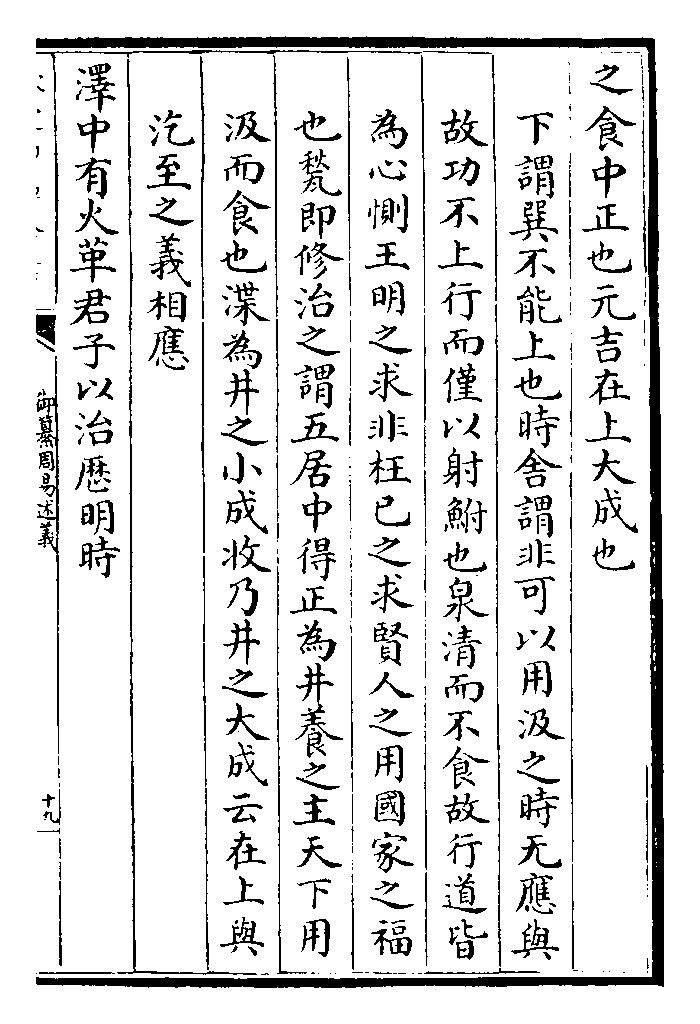 之食中正也元吉在上大成也
下謂巽不能上也時舍謂非可以用汲之時无應與
故功不上行而僅以射鮒也泉清而不食故行道皆
為心惻王明之求非枉已之求賢人之用國家之福
也甃即修治之謂五居中得正為井養之主天下用
汲而食也渫為井之小成收乃井之大成云在上與
汔至之義相應
澤中有火革君子以治歴明時
御纂周易述義
十九